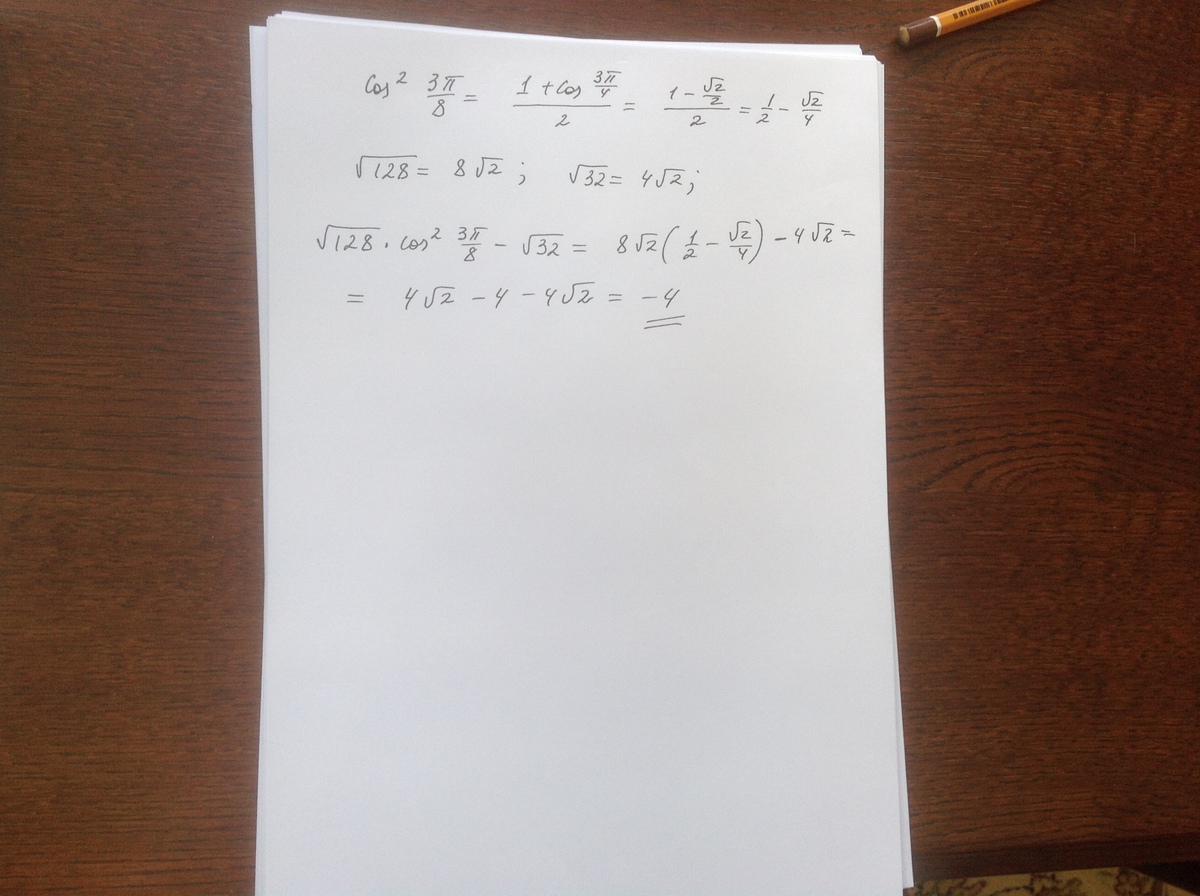 cos² 3π/8 = (1 + cos 3π/4)/2 = (1 - √2/2)/2 = 1/2 - √2/4
√128 = 8√2 ; √32 = 4√2 ;
√128 · cos² 3π/8 - √32 = 8√2 (1/2 - √2/4) - 4√2 =
= 4√2 - 4 - 4√2 = -4